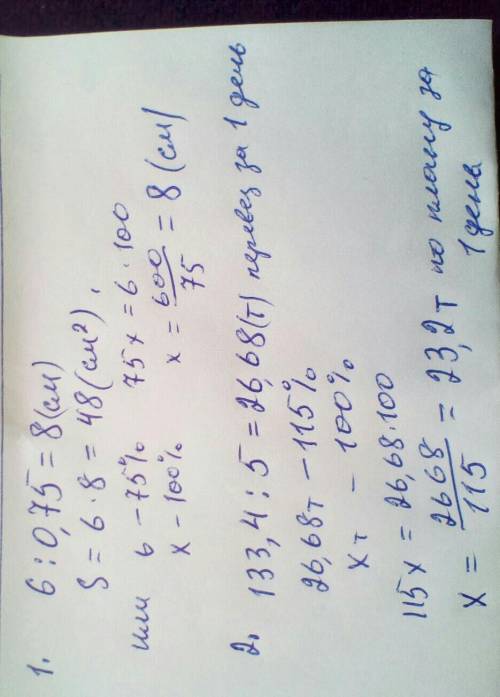 1. 6 : 0,75 = 8 (см)
S = 6 · 8 = 48 (см²).
или 6 – 75% 75x = 6 · 100
x – 100% x = 600/75 = 8 (см)
2. 133,4 : 5 = 26,68 (т) перевез за 1 день
26,68т – 115%
xт – 100%
115x = 26,68 · 100
x = 2668/115 = 23,2т по плану за
1 день